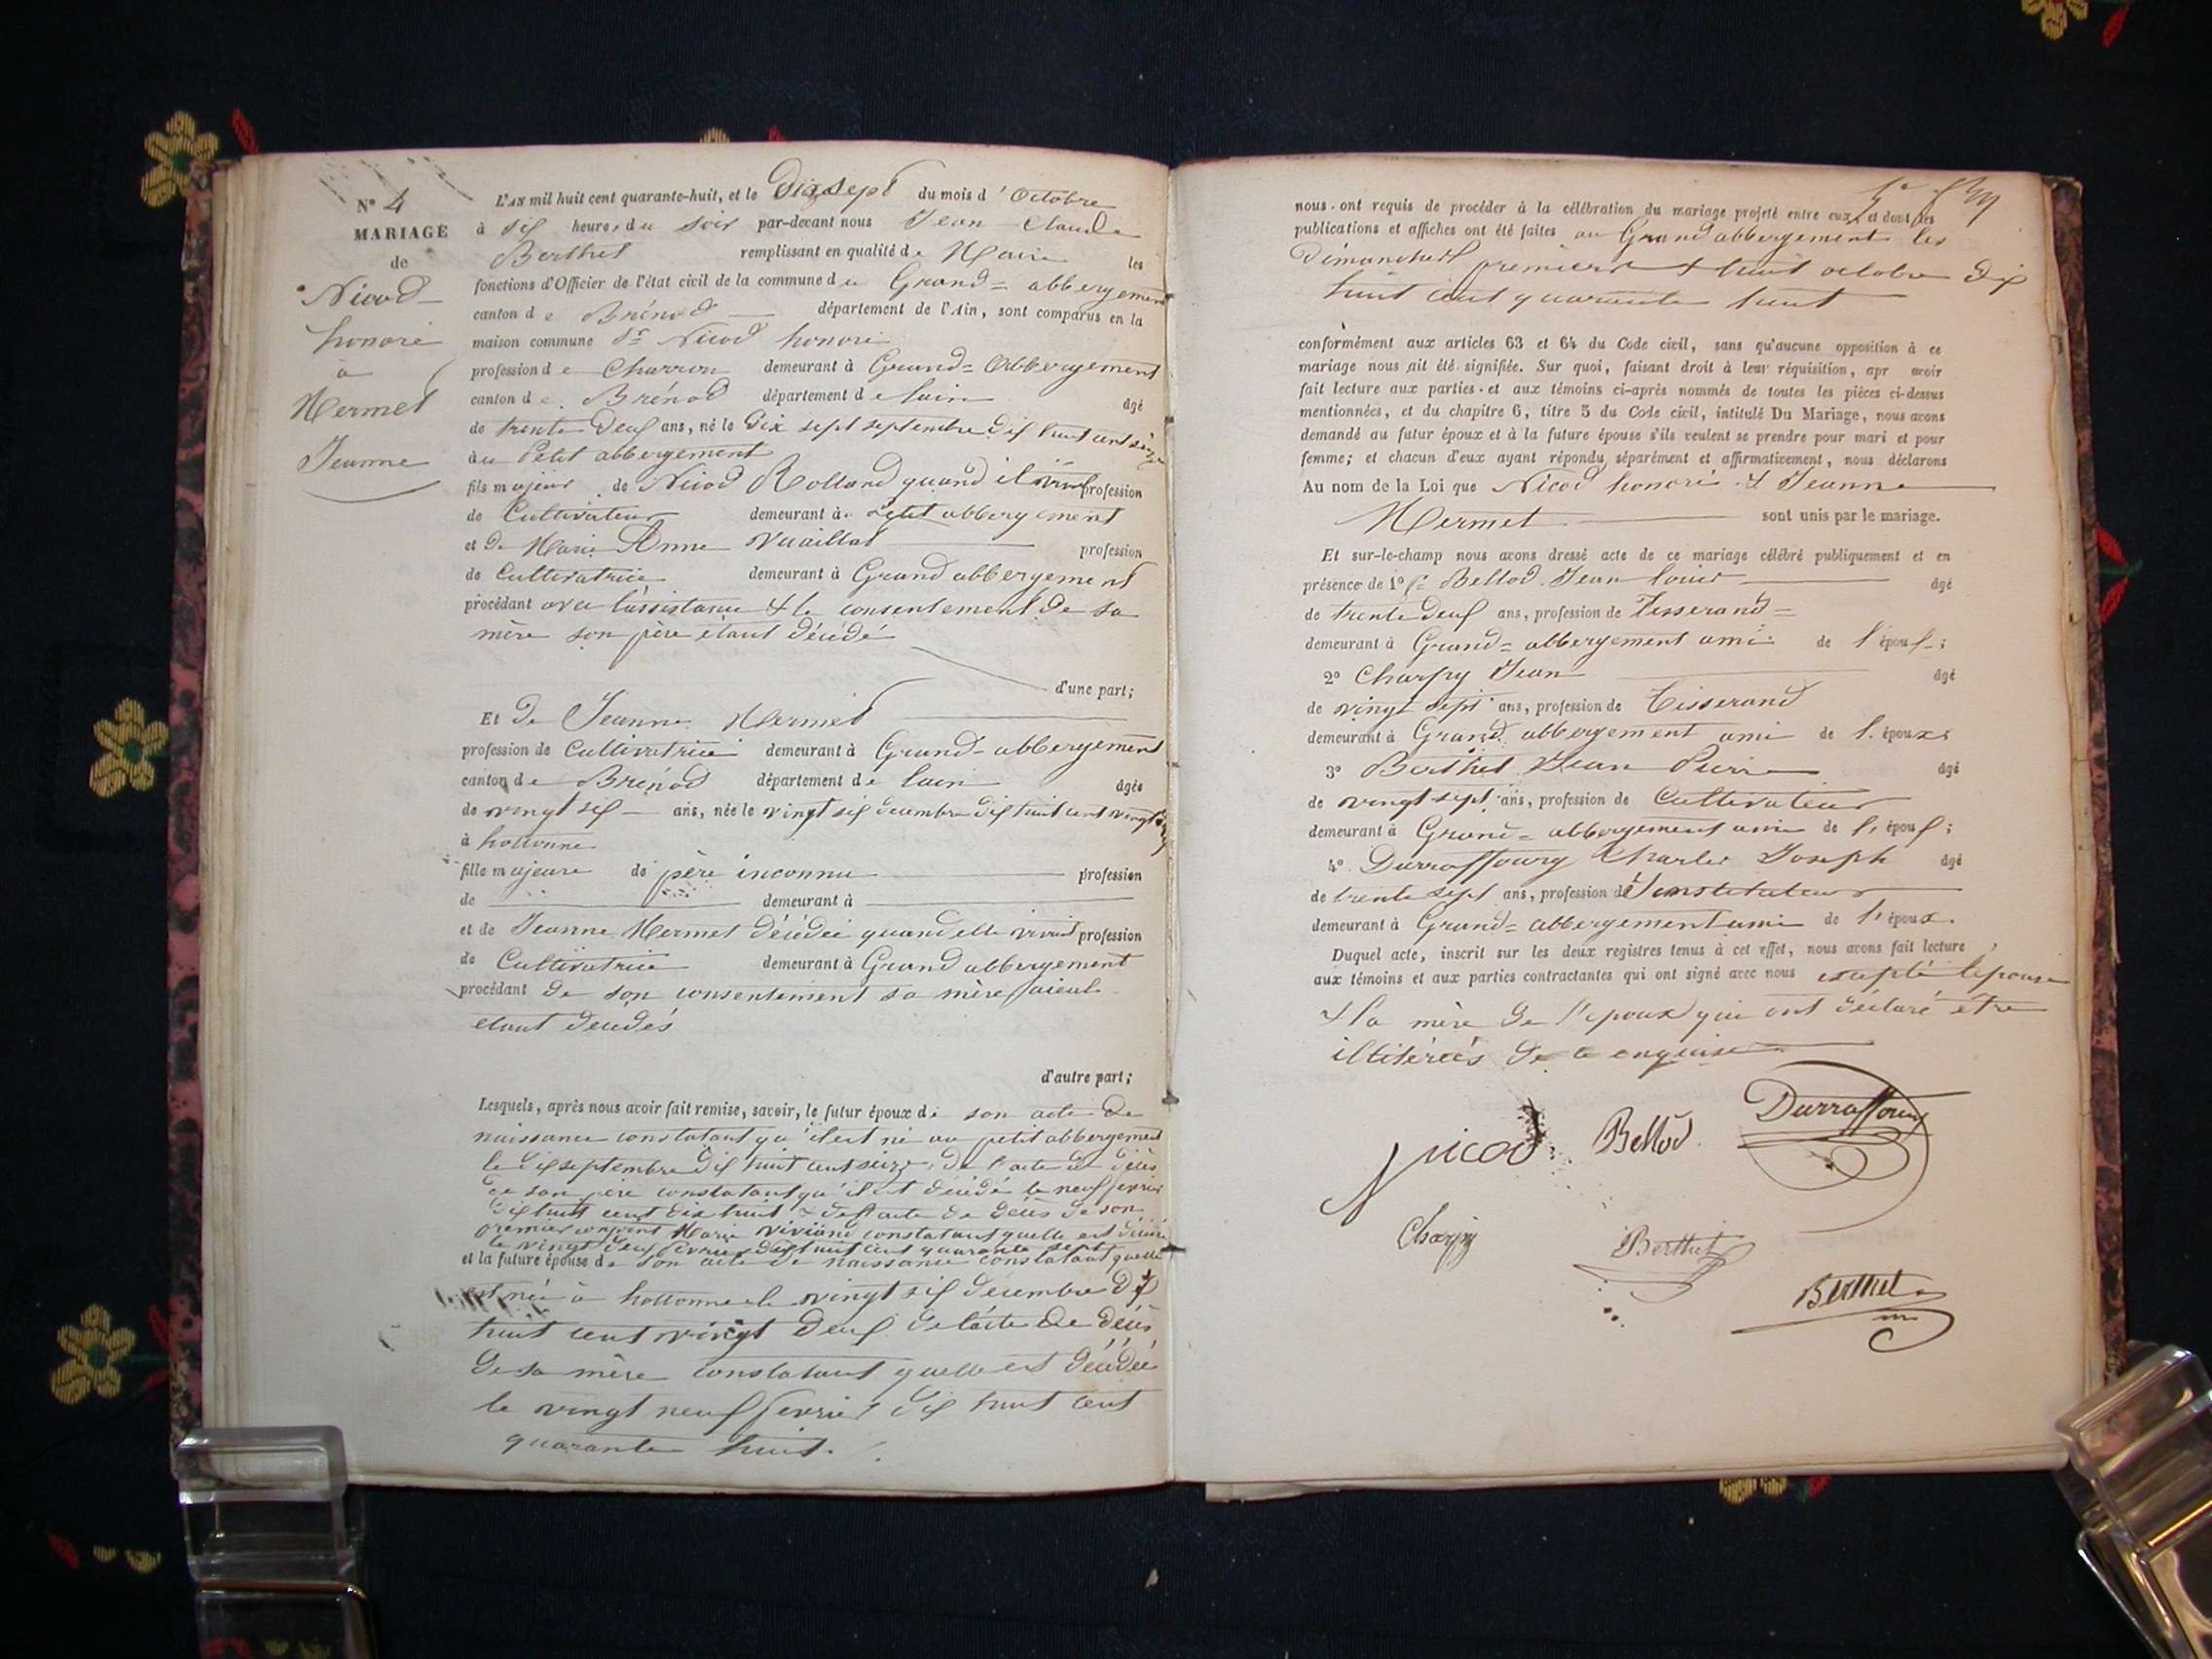 N° 4
MARIAGE
de
Nicod
honoré
à
Hermet
Jeanne
L'AN mil huit cent quarante-huit, et le Dix sept du mois d' Octobre
à six heures du soir par-devant nous Jean Claude
Berthet remplissant en qualité de Maire les
fonctions d'Officier de l'état civil de la commune du Grand=abbergement
canton de Brénod département de l'Ain, sont comparus en la
maison commune Sr Nicod honoré
profession de Charron demeurant à Grand=Abbergement
canton de Brénod département de lain âgé
de trente deux ans, né le Dix sept septembre dix huit cent seize
au Petit abbergement
fils majeur de Nicod Rolland quand il vivait profession
de Cultivateur demeurant à Petit abbergement
et de Marie Anne Vuaillat profession
de Cultivatrice demeurant à Grand abbergement
procédant avec l'assistance & le consentement de sa
mère son père étant décédé
d'une part;
Et De Jeanne Hermet
profession de Cultivatrice demeurant à Grand-abbergement
canton de Brénod département de lain âgée
de vingt six ans, née le vingt six decembre dix huit cent vingt
à hottonne
fille majeure de père inconnu profession
de demeurant à
et de Jeanne Hermet décédée quand elle vivait profession
de Cultivatrice demeurant à Grand abbergement
procédant de son consentement sa mère aieul
etant decedés
d'autre part;
Lesquels, après nous avoir fait remise, savoir, le futur époux de son acte de
naissance constatant qu'il est né au petit abbergement
le dix septembre dix huit cent seize, de l'acte de décès
de son père constatant qu'il est décédé le neuf fevrier
dix huit cent dix huit & de l'acte de décès de son
premier conjoint Marie Viviand constatant quelle est décédée
le vingt deux fevrier dix huit cent quarante sept
et la future épouse de son acte de naissance constatant quelle
est née à hottonne le vingt six decembre dix
huit cent vingt deux de l'acte de décès
de sa mère constatant quelle est décédée
le vingt neuf fevrier dix huit cent
quarante huit.
nous ont requis de procéder à la célébration du mariage projeté entre eux, et dont les
publications et affiches ont été faites au Grand abbergement les
Dimanches premier & huit octobre dix
huit cent quarante huit
conformément aux articles 63 et 64 du Code civil, sans qu'aucune opposition à ce
mariage nous ait été signifiée. Sur quoi, faisant droit à leur réquisition, apr avoir
fait lecture aux parties et aux témoins ci-après nommés de toutes les pièces ci-dessus
mentionnées, et du chapitre 6, titre 5 du Code civil, intitulé Du Mariage, nous avons
demandé au futur époux et à la future épouse s'ils veulent se prendre pour mari et pour
femme; et chacun d'eux ayant répondu séparément et affirmativement, nous déclarons
Au nom de la Loi que Nicod honoré & Jeanne
Hermet sont unis par le mariage.
Et sur-le-champ nous avons dressé acte de ce mariage célébré publiquement et en
présence de 1° Sr Bellod Jean louis âgé
de trente deux ans, profession de Tisserand=
demeurant à Grand=abbergement ami de l'époux;
2° Charpy Jean âgé
de vingt sept ans, profession de Tisserand
demeurant à Grand abbergement ami de l'époux;
3° Berthet Jean Pierre âgé
de vingt sept ans, profession de Cultivateur
demeurant à Grand=abbergement ami de l'époux;
4° Durraffourg Charles Joseph âgé
de trente sept ans, profession de Instituteur
demeurant à Grand=abbergement ami de l'époux.
Duquel acte, inscrit sur les deux registres tenus à cet effet, nous avons fait lecture
aux témoins et aux parties contractantes qui ont signé avec nous excepté l'épouse
& la mère de l'epoux qui ont déclaré être
illitérées de ce enquises
Nicod Bellod Durraffourg
Charpy Berthet
Berthet